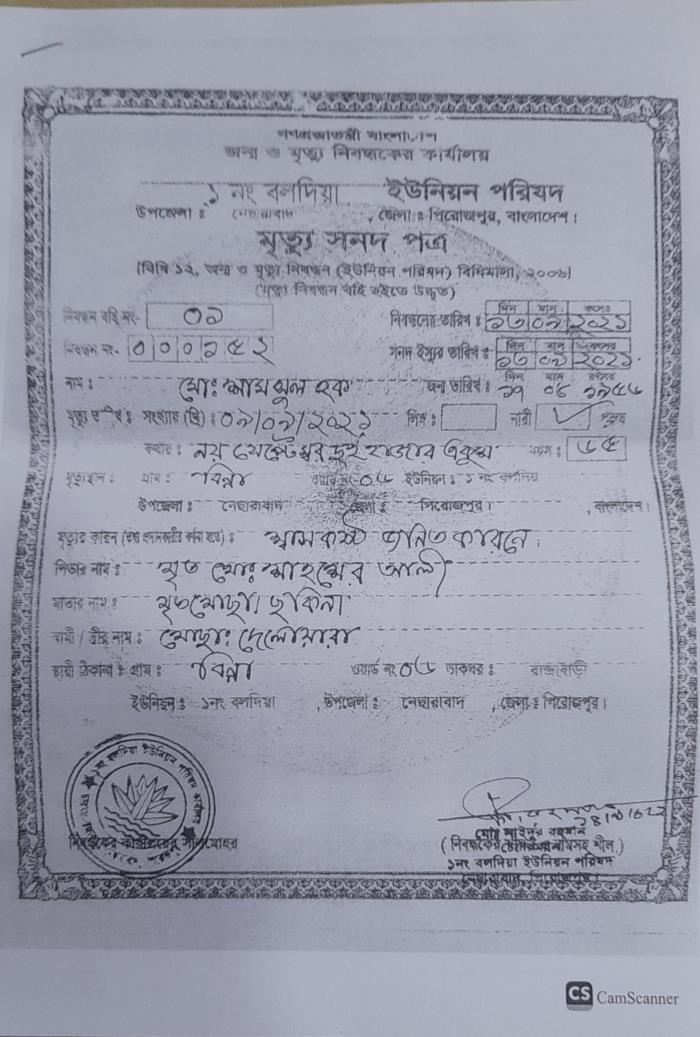 গণপ্রজাতন্ত্রী বাংলাদেশ
জন্ম ও মৃত্যু নিবন্ধকের কার্যালয়
১ নং বলদিয়া ইউনিয়ন পরিষদ
উপজেলা : নেছারাবাদ , জেলা : পিরোজপুর, বাংলাদেশ।
মৃত্যু সনদ পত্র
[বিধি ১২, জন্ম ও মৃত্যু নিবন্ধন (ইউনিয়ন পরিষদ) বিধিমালা, ২০০৬]
(মৃত্যু নিবন্ধন বহি হইতে উদ্ধৃত)
নিবন্ধন বহি নং- ০৯
নিবন্ধনের তারিখ : দিন মাস বৎসর ১৩ ০৯ ২০২১
নিবন্ধন নং- ০ ০ ০ ১ ৫ ২
সনদ ইস্যুর তারিখ : দিন মাস বৎসর ১৩ ০৯ ২০২১
নাম : মোঃ শামসুল হক জন্ম তারিখ : দিন মাস বৎসর ১৯৫৬
মৃত্যু তারিখ : সংখ্যায় (খ্রি) : ০৯/০৯/২০২১ লিঙ্গ : নারী ✓ পুরুষ
কথায় : নয় সেপ্টেম্বর দুই হাজার একুশ বয়স : ৬৫
মৃত্যুস্থান : গ্রাম : বিন্না ওয়ার্ড নং- ০৬ ইউনিয়ন : ১ নং বলদিয়া
উপজেলা : নেছারাবাদ জেলা : পিরোজপুর। , বাংলাদেশ।
মৃত্যুর কারণ : শ্বাসকষ্ট জনিত কারনে।
পিতার নাম : মৃত মোঃ আলী
মাতার নাম : মৃত মোছাঃ ছকিনা
স্বামী / স্ত্রীর নাম : মোছাঃ দেলোয়ারা
স্থায়ী ঠিকানা : গ্রাম : বিন্না ওয়ার্ড নং ০৬ ডাকঘর : রাজবাড়ী
ইউনিয়ন : ১নং বলদিয়া , উপজেলা : নেছারাবাদ , জেলা : পিরোজপুর।
নিবন্ধকের কার্যালয়ের সীলমোহর
মোঃ সাইদুর রহমান
১নং বলদিয়া ইউনিয়ন পরিষদ
নেছারাবাদ, পিরোজপুর।
CS CamScanner